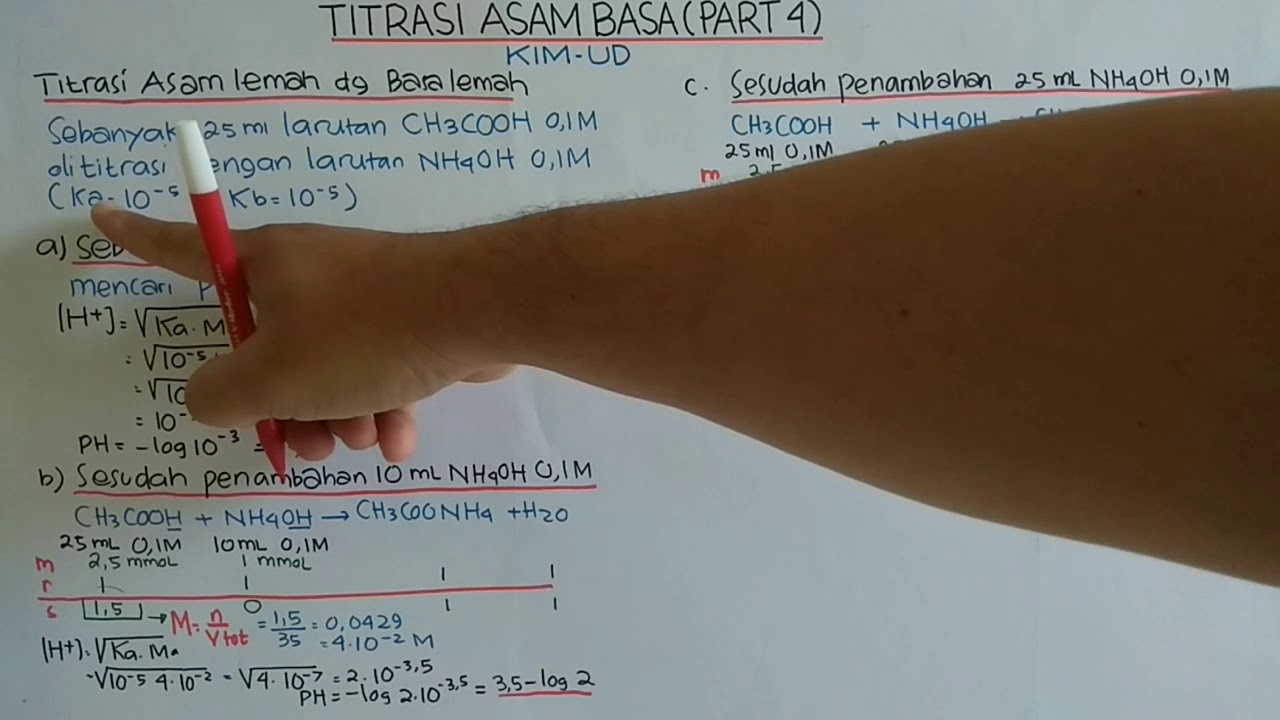 TITRASI ASAM BASA (PART 4)
KIM-UD
Titrasi Asam lemah dg Basa lemah
Sebanyak 25 ml larutan CH3COOH 0,1M
dititrasi dengan larutan NH4OH 0,1M
(Ka=10⁻⁵ Kb=10⁻⁵)
a)
mencari
[H+] = √Ka. M
= √10⁻⁵
= √10
= 10⁻
PH = -log 10⁻³ =
b) Sesudah penambahan 10 mL NH4OH 0,1M
CH3COOH + NH4OH → CH3COONH4 + H2O
25 mL 0,1M 10 mL 0,1M
m 2,5 mmol 1 mmol
r 1 1 1 1
s 1,5 0 1 1
→ M = n/Vtot = 1,5/35 = 0,0429
= 4.10⁻² M
[H+] = √Ka. Ma
= √10⁻⁵ 4.10⁻² = √4.10⁻⁷ = 2.10⁻³,⁵
PH = -log 2.10⁻³,⁵ = 3,5-log 2
c. Sesudah penambahan 25 mL NH4OH 0,1M
CH3COOH + NH4OH
25 ml 0,1M
m